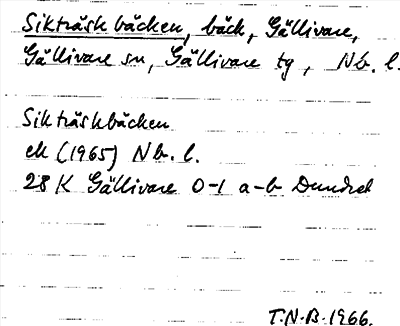 Sikträskbäcken, bäck, Gällivare,
Gällivare sn, Gällivare tg, Nb. l.
Sikträskbäcken
ek (1965) Nb. l.
28 K Gällivare 0-1 a-b Dundret
T.N.B. 1966.